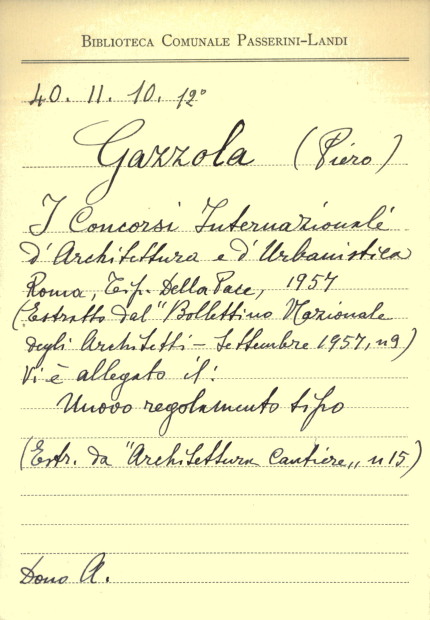 BIBLIOTECA COMUNALE PASSERINI-LANDI
40. II. 10. 12°
Gazzola (Piero)
I Concorsi Internazionali
d'Architettura e d'Urbanistica
Roma, Tip. Della Pace, 1957
(Estratto dal "Bollettino Nazionale
degli Architetti - Settembre 1957, n 9)
Vi è allegato il:
Nuovo regolamento tipo
(Estr. da "Architettura Cantiere„ n 15)
Dono A.